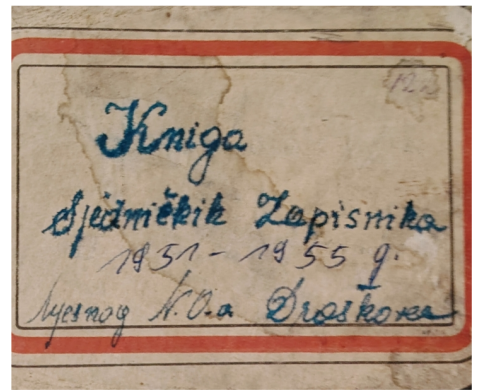 12.
Kniga
Sjedničkih Zapisnika
1951-1955 g.
Mjesnog N.O.a Droškovac